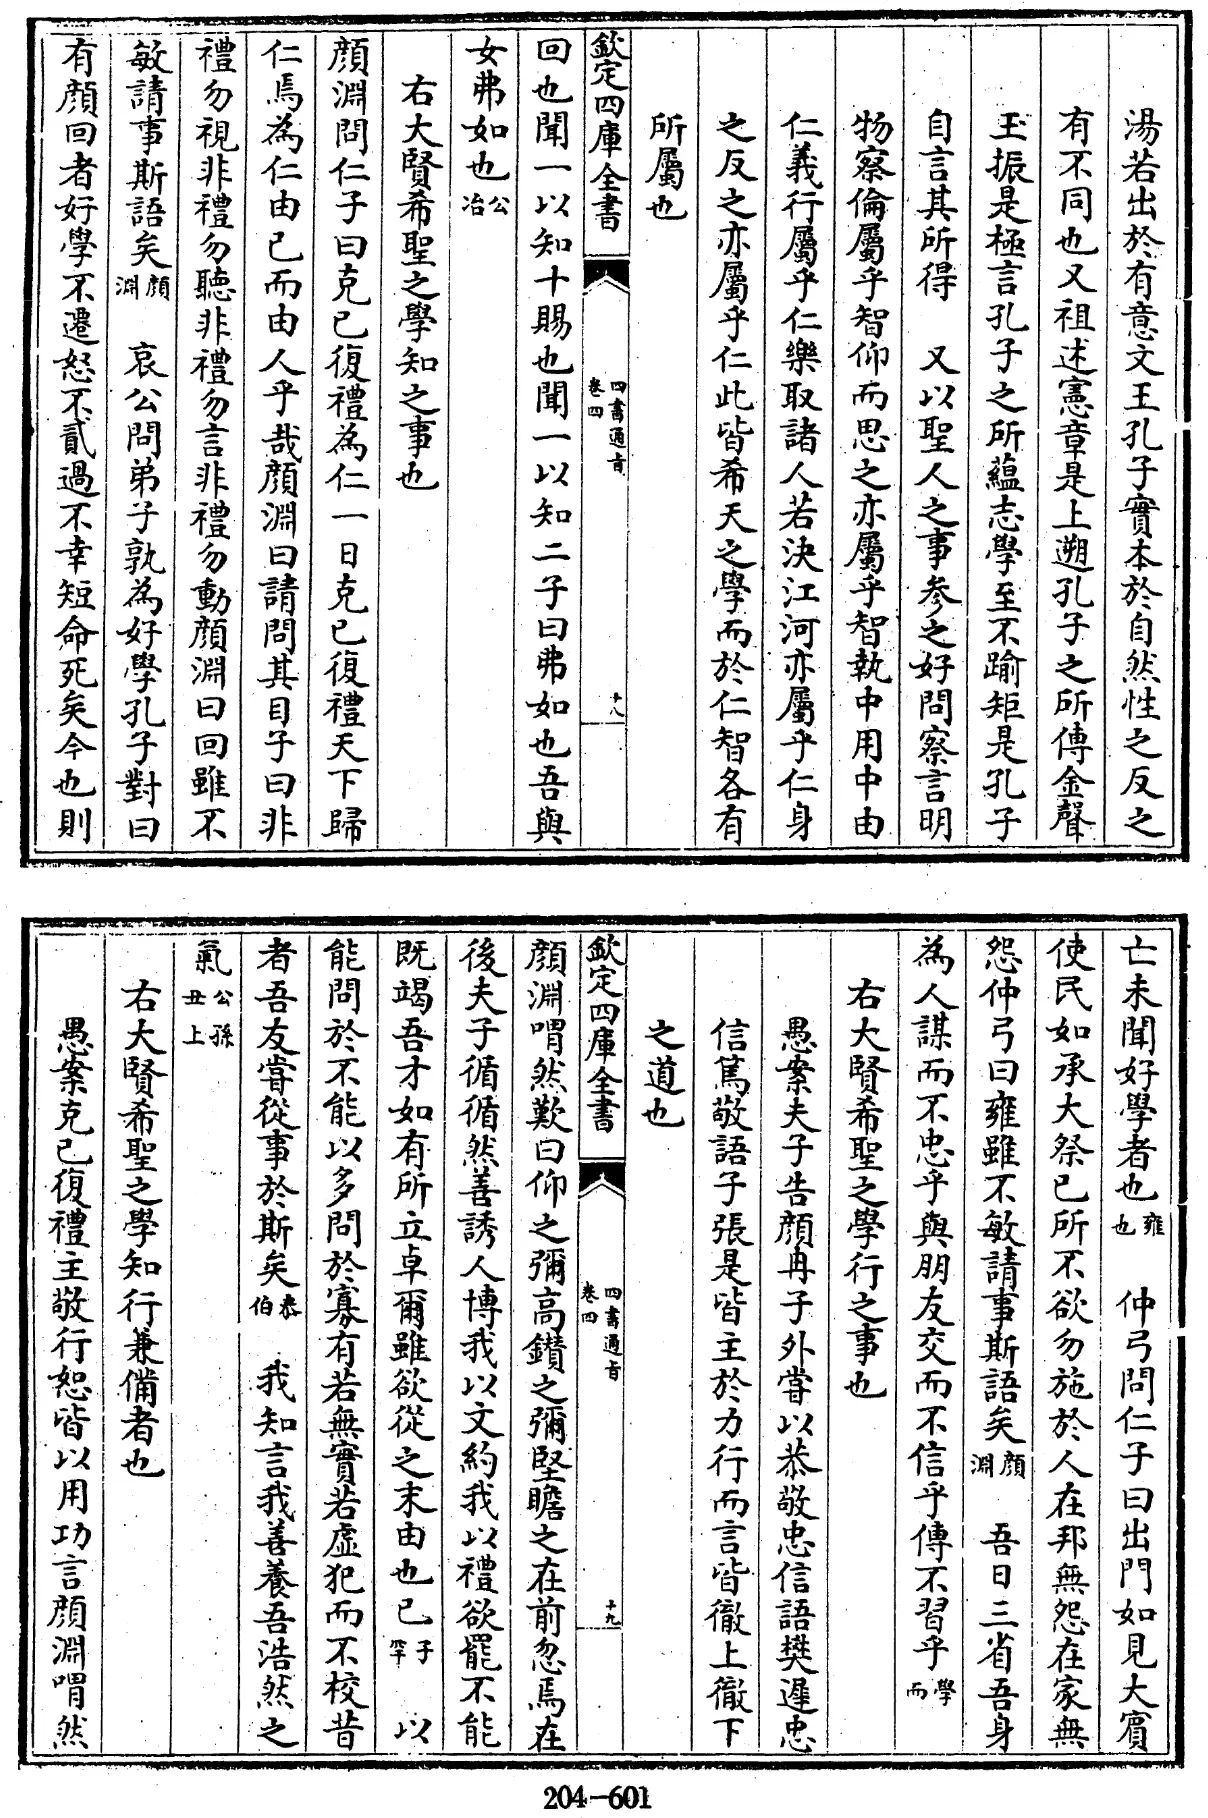 湯若出於有意文王孔子實本於自然性之反之
有不同也又祖述憲章是上遡孔子之所傳金聲
玉振是極言孔子之所蘊志學至不踰矩是孔子
自言其所得　又以聖人之事参之好問察言明
物察倫屬乎智仰而思之亦屬乎智執中用中由
仁義行屬乎仁樂取諸人若決江河亦屬乎仁身
之反之亦屬乎仁此皆希天之學而於仁智各有
所屬也
欽定四庫全書　四書通旨卷四　十八
回也聞一以知十賜也聞一以知二子曰弗如也吾與
女弗如也公冶
右大賢希聖之學知之事也
顔淵問仁子曰克己復禮為仁一日克己復禮天下歸
仁焉為仁由己而由人乎哉顔淵曰請問其目子曰非
禮勿視非禮勿聽非禮勿言非禮勿動顔淵曰回雖不
敏請事斯語矣顔淵　哀公問弟子孰為好學孔子對曰
有顔回者好學不遷怒不貳過不幸短命死矣今也則
亡未聞好學者也雍也　仲弓問仁子曰出門如見大賓
使民如承大祭己所不欲勿施於人在邦無怨在家無
怨仲弓曰雍雖不敏請事斯語矣顔淵　吾日三省吾身
為人謀而不忠乎與朋友交而不信乎傳不習乎學而
右大賢希聖之學行之事也
愚案夫子告顔冉子外嘗以恭敬忠信語樊遲忠
信篤敬語子張是皆主於力行而言皆徹上徹下
之道也
欽定四庫全書　四書通旨卷四　十九
顔淵喟然歎曰仰之彌高鑚之彌堅瞻之在前忽焉在
後夫子循循然善誘人博我以文約我以禮欲罷不能
既竭吾才如有所立卓爾雖欲從之末由也已子罕　以
能問於不能以多問於寡有若無實若虛犯而不校昔
者吾友嘗從事於斯矣泰伯　我知言我善養吾浩然之
氣公孫丑上
右大賢希聖之學知行兼備者也
愚案克己復禮主敬行恕皆以用功言顔淵喟然
204-601